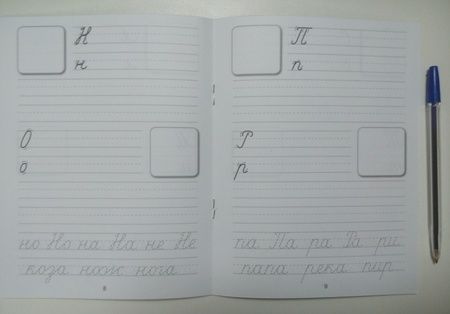 Н
н
О
о
но Но на На не Не
коза нож нога
8
П
п
Р
р
па Па ра Ра ри
папа река пир
9